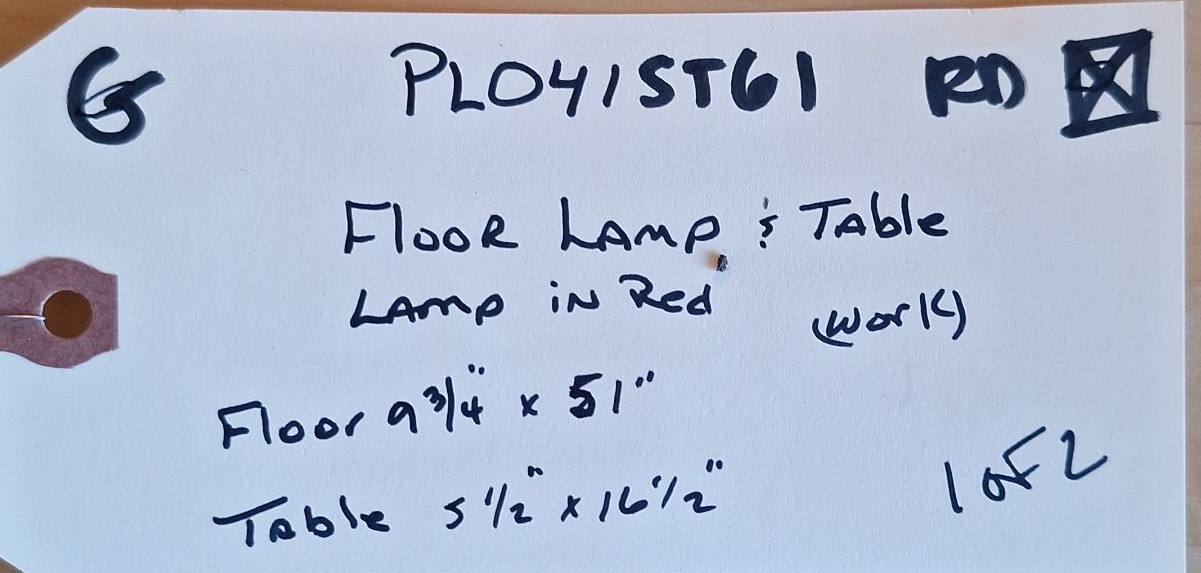 G PL041ST61 RD
FlooR LAMP & TAble
LAMP in Red (work)
Floor 9 3/4" x 51"
Table 5 1/2" x 16 1/2"
1 oF 2